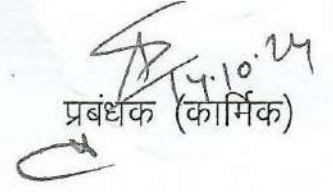 14.10.24
प्रबंधक (कार्मिक)